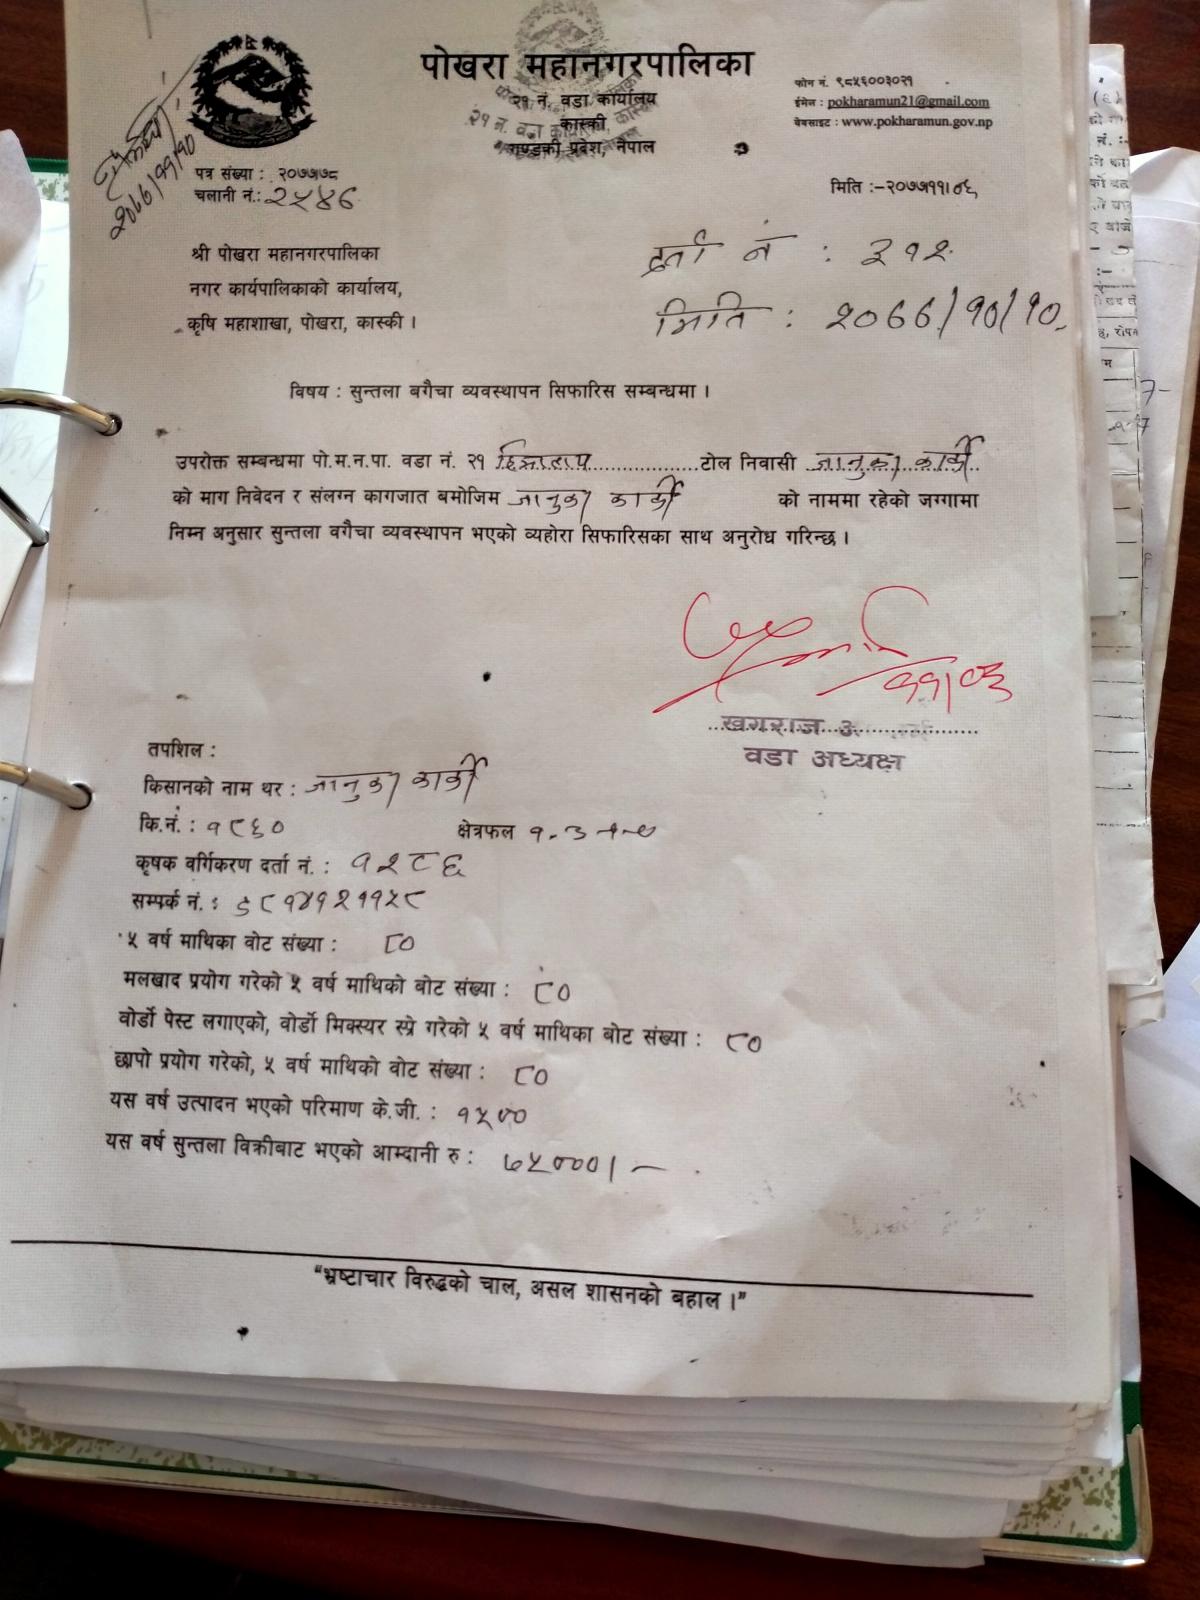 पोखरा महानगरपालिका
२१ नं. वडा कार्यालय
कास्की
गण्डकी प्रदेश, नेपाल
फोन नं. ९८५६००३०२१
ईमेल : pokharamun21@gmail.com
वेबसाइट : www.pokharamun.gov.np
पत्र संख्या : २०७७/७८
चलानी नं.: २५४६
मिति :-२०७७।११।०६
२०७७/११/१०
श्री पोखरा महानगरपालिका
नगर कार्यपालिकाको कार्यालय,
कृषि महाशाखा, पोखरा, कास्की ।
दर्ता नं : ३१२
मिति : २०७७/१०/१०
विषय : सुन्तला बगैचा व्यवस्थापन सिफारिस सम्बन्धमा ।
उपरोक्त सम्बन्धमा पो.म.न.पा. वडा नं. २१ हिमालय टोल निवासी जानुका कार्की
को माग निवेदन र संलग्न कागजात बमोजिम जानुका कार्की को नाममा रहेको जग्गामा
निम्न अनुसार सुन्तला वगैचा व्यवस्थापन भएको व्यहोरा सिफारिसका साथ अनुरोध गरिन्छ ।
११/०६
खगराज
वडा अध्यक्ष
तपशिल :
किसानको नाम थर : जानुका कार्की
कि.नं. : १८६० क्षेत्रफल
कृषक वर्गिकरण दर्ता नं. : १२८६
सम्पर्क नं. : ९८१४१२११५८
५ वर्ष माथिका वोट संख्या : ८०
मलखाद प्रयोग गरेको ५ वर्ष माथिको बोट संख्या : ८०
वोर्डो पेस्ट लगाएको, वोर्डो मिक्स्यर स्प्रे गरेको ५ वर्ष माथिका बोट संख्या : ८०
छापो प्रयोग गरेको, ५ वर्ष माथिको वोट संख्या : ८०
यस वर्ष उत्पादन भएको परिमाण के.जी. : १५००
यस वर्ष सुन्तला विक्रीबाट भएको आम्दानी रु : ७५०००।-
"भ्रष्टाचार विरुद्धको चाल, असल शासनको बहाल ।"